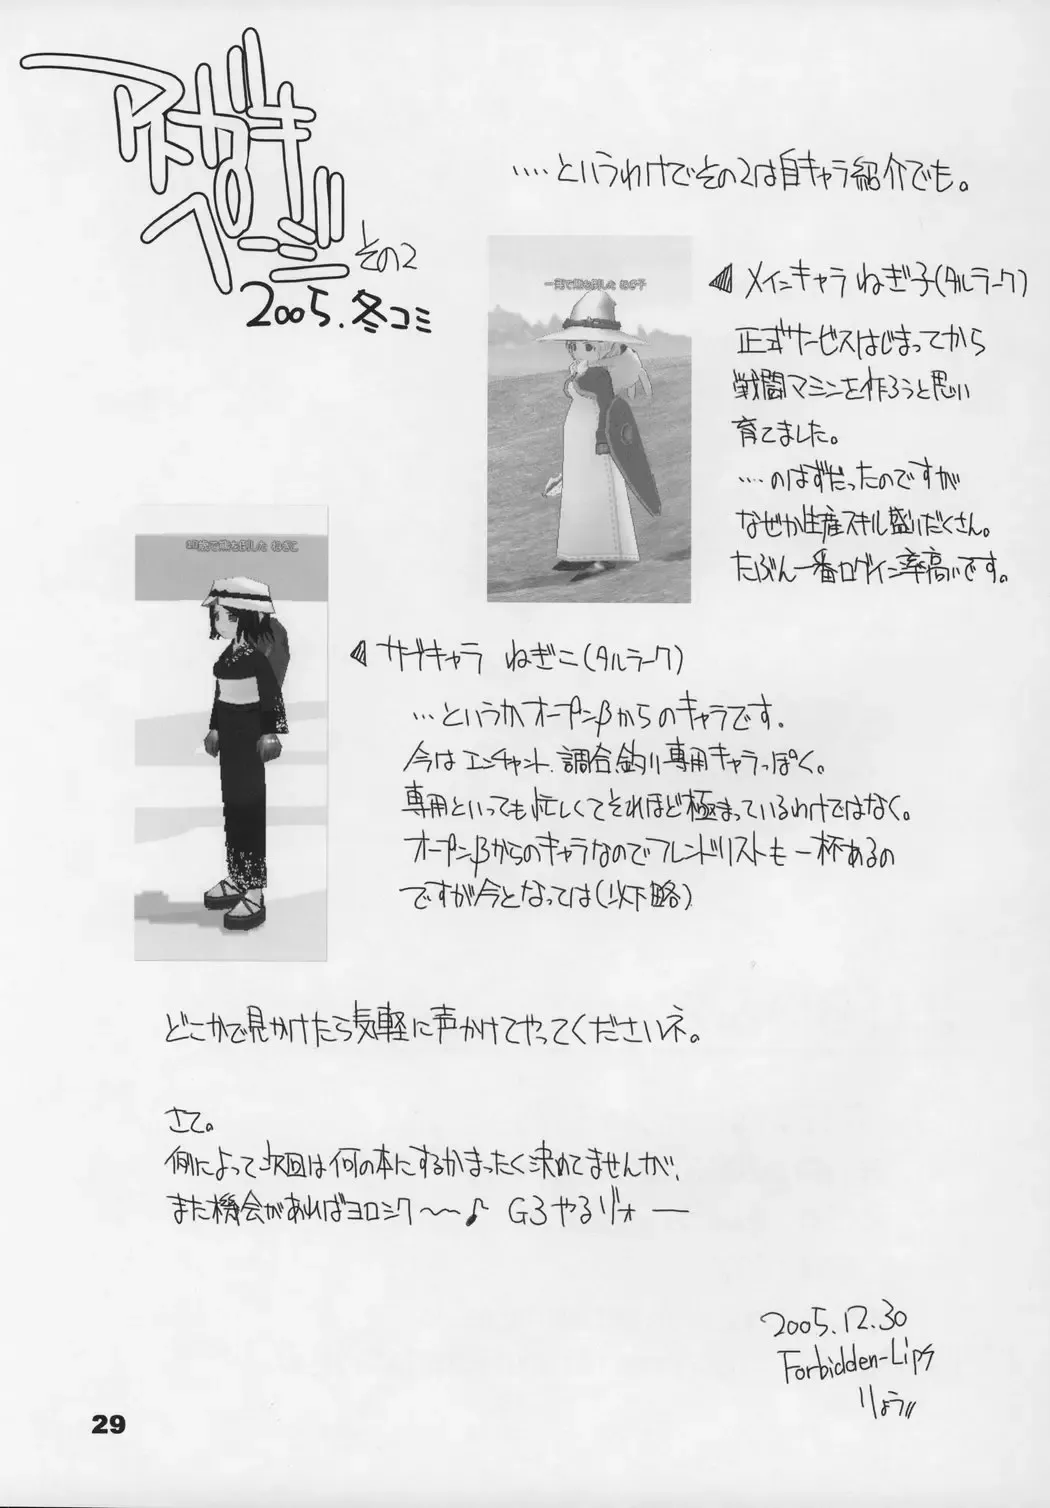 アトガキ
ページ
その2
2005.冬コミ
‥‥というわけでその2は自キャラ紹介でも。
一発で熊を倒した ねぎ子
メインキャラ ねぎ子(タルラーク)
正式サービスはじまってから
戦闘マシンを作ろうと思い
育てました。
‥‥のはずだったのですが
なぜか生産スキル盛りだくさん。
たぶん一番ログイン率高いです。
歳で熊を倒した ねぎこ
サブキャラ ねぎこ(タルラーク)
…というかオープンβからのキャラです。
今はエンチャント、調合、釣り専用キャラっぽく。
専用といっても忙しくてそれほど極まっているわけではなく。
オープンβからのキャラなのでフレンドリストも一杯あるの
ですが今となっては(以下略)
どこかで見かけたら気軽に声かけてやってくださいネ。
さて。
例によって次回は何の本にするかまったく決めてませんが、
また機会があればヨロシク〜〜♪ G3やるゾォー
2005.12.30
Forbidden-Lips
りょう
29